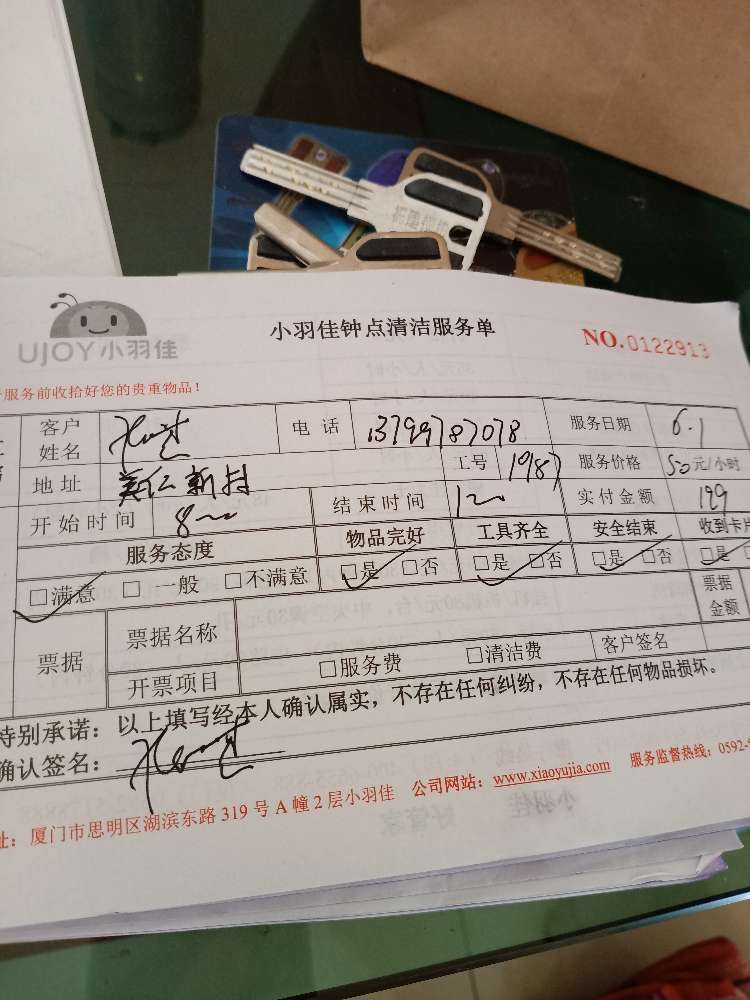 UJOY小羽佳
小羽佳钟点清洁服务单
NO.0122913
服务前收拾好您的贵重物品！
客户姓名 电话 13799787078 服务日期 6.1
地址 美仁新村 工号 1987 服务价格 50元/小时
开始时间 8 结束时间 12 实付金额 199
服务态度 物品完好 工具齐全 安全结束 收到卡片
□满意 □一般 □不满意 □是 □否 □是 □否 □是 □否 □是
票据 票据名称 票据金额
开票项目 □服务费 □清洁费 客户签名
特别承诺：以上填写经本人确认属实，不存在任何纠纷，不存在任何物品损坏。
确认签名：
址：厦门市思明区湖滨东路319号A幢2层小羽佳 公司网站：www.xiaoyujia.com 服务监督热线：0592-